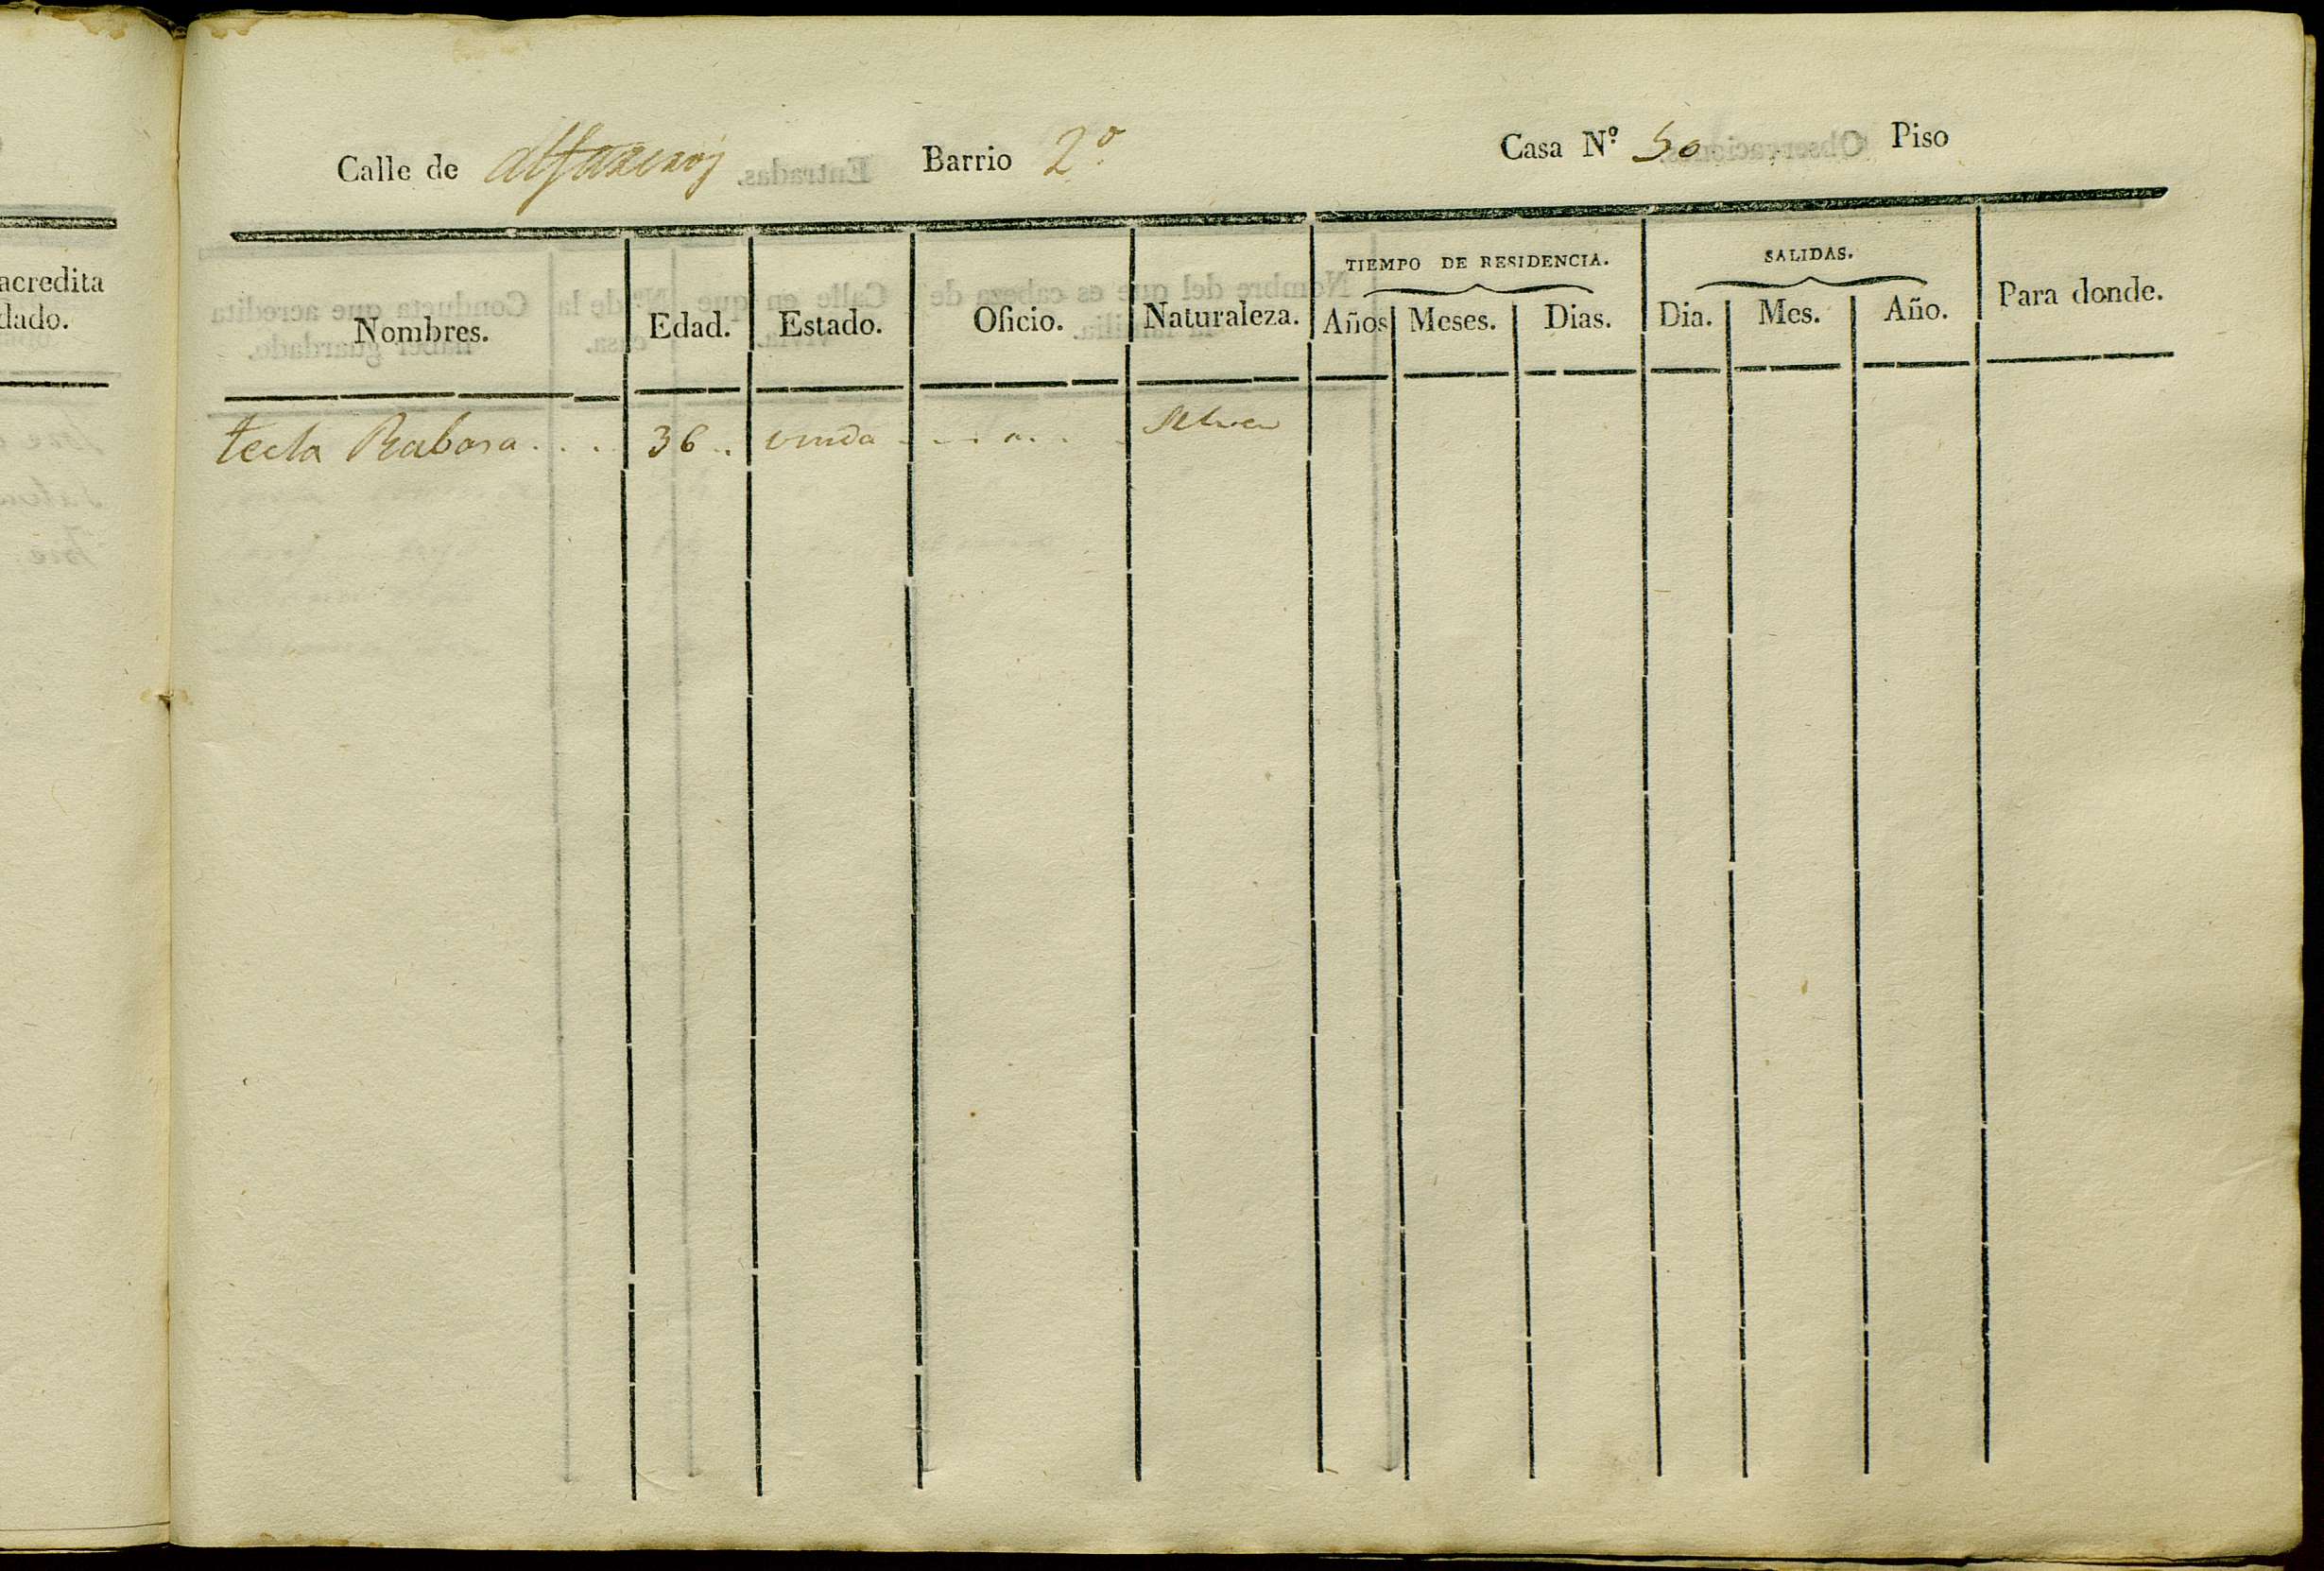 acredita
dado.
Calle de alfareros Barrio 2º Casa Nº 50 Piso
Nombres. Edad. Estado. Oficio. Naturaleza. TIEMPO DE RESIDENCIA. Años Meses. Dias. SALIDAS. Dia. Mes. Año. Para donde.
tecla Rabasa . . . . 36 . . viuda